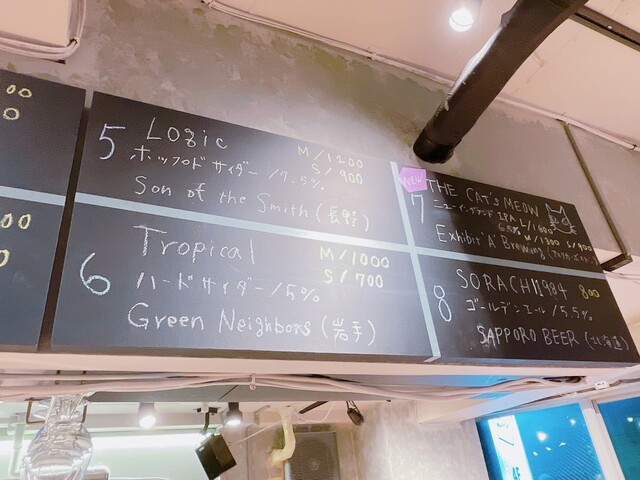 00
0
00
0
5 Logic M/1200
ホップドサイダー/7.5% S/900
Son of the Smith (長野)
6 Tropical M/1000
ハードサイダー/5% S/700
Green Neighbors (岩手)
NEW
7 THE CAT'S MEOW
ニューイングランド IPA L/1600
6.5% M/1300 S/900
Exhibit A Brewing
8 SORACHI 1984 800
ゴールデンエール/5.5%
SAPPORO BEER (北海道)